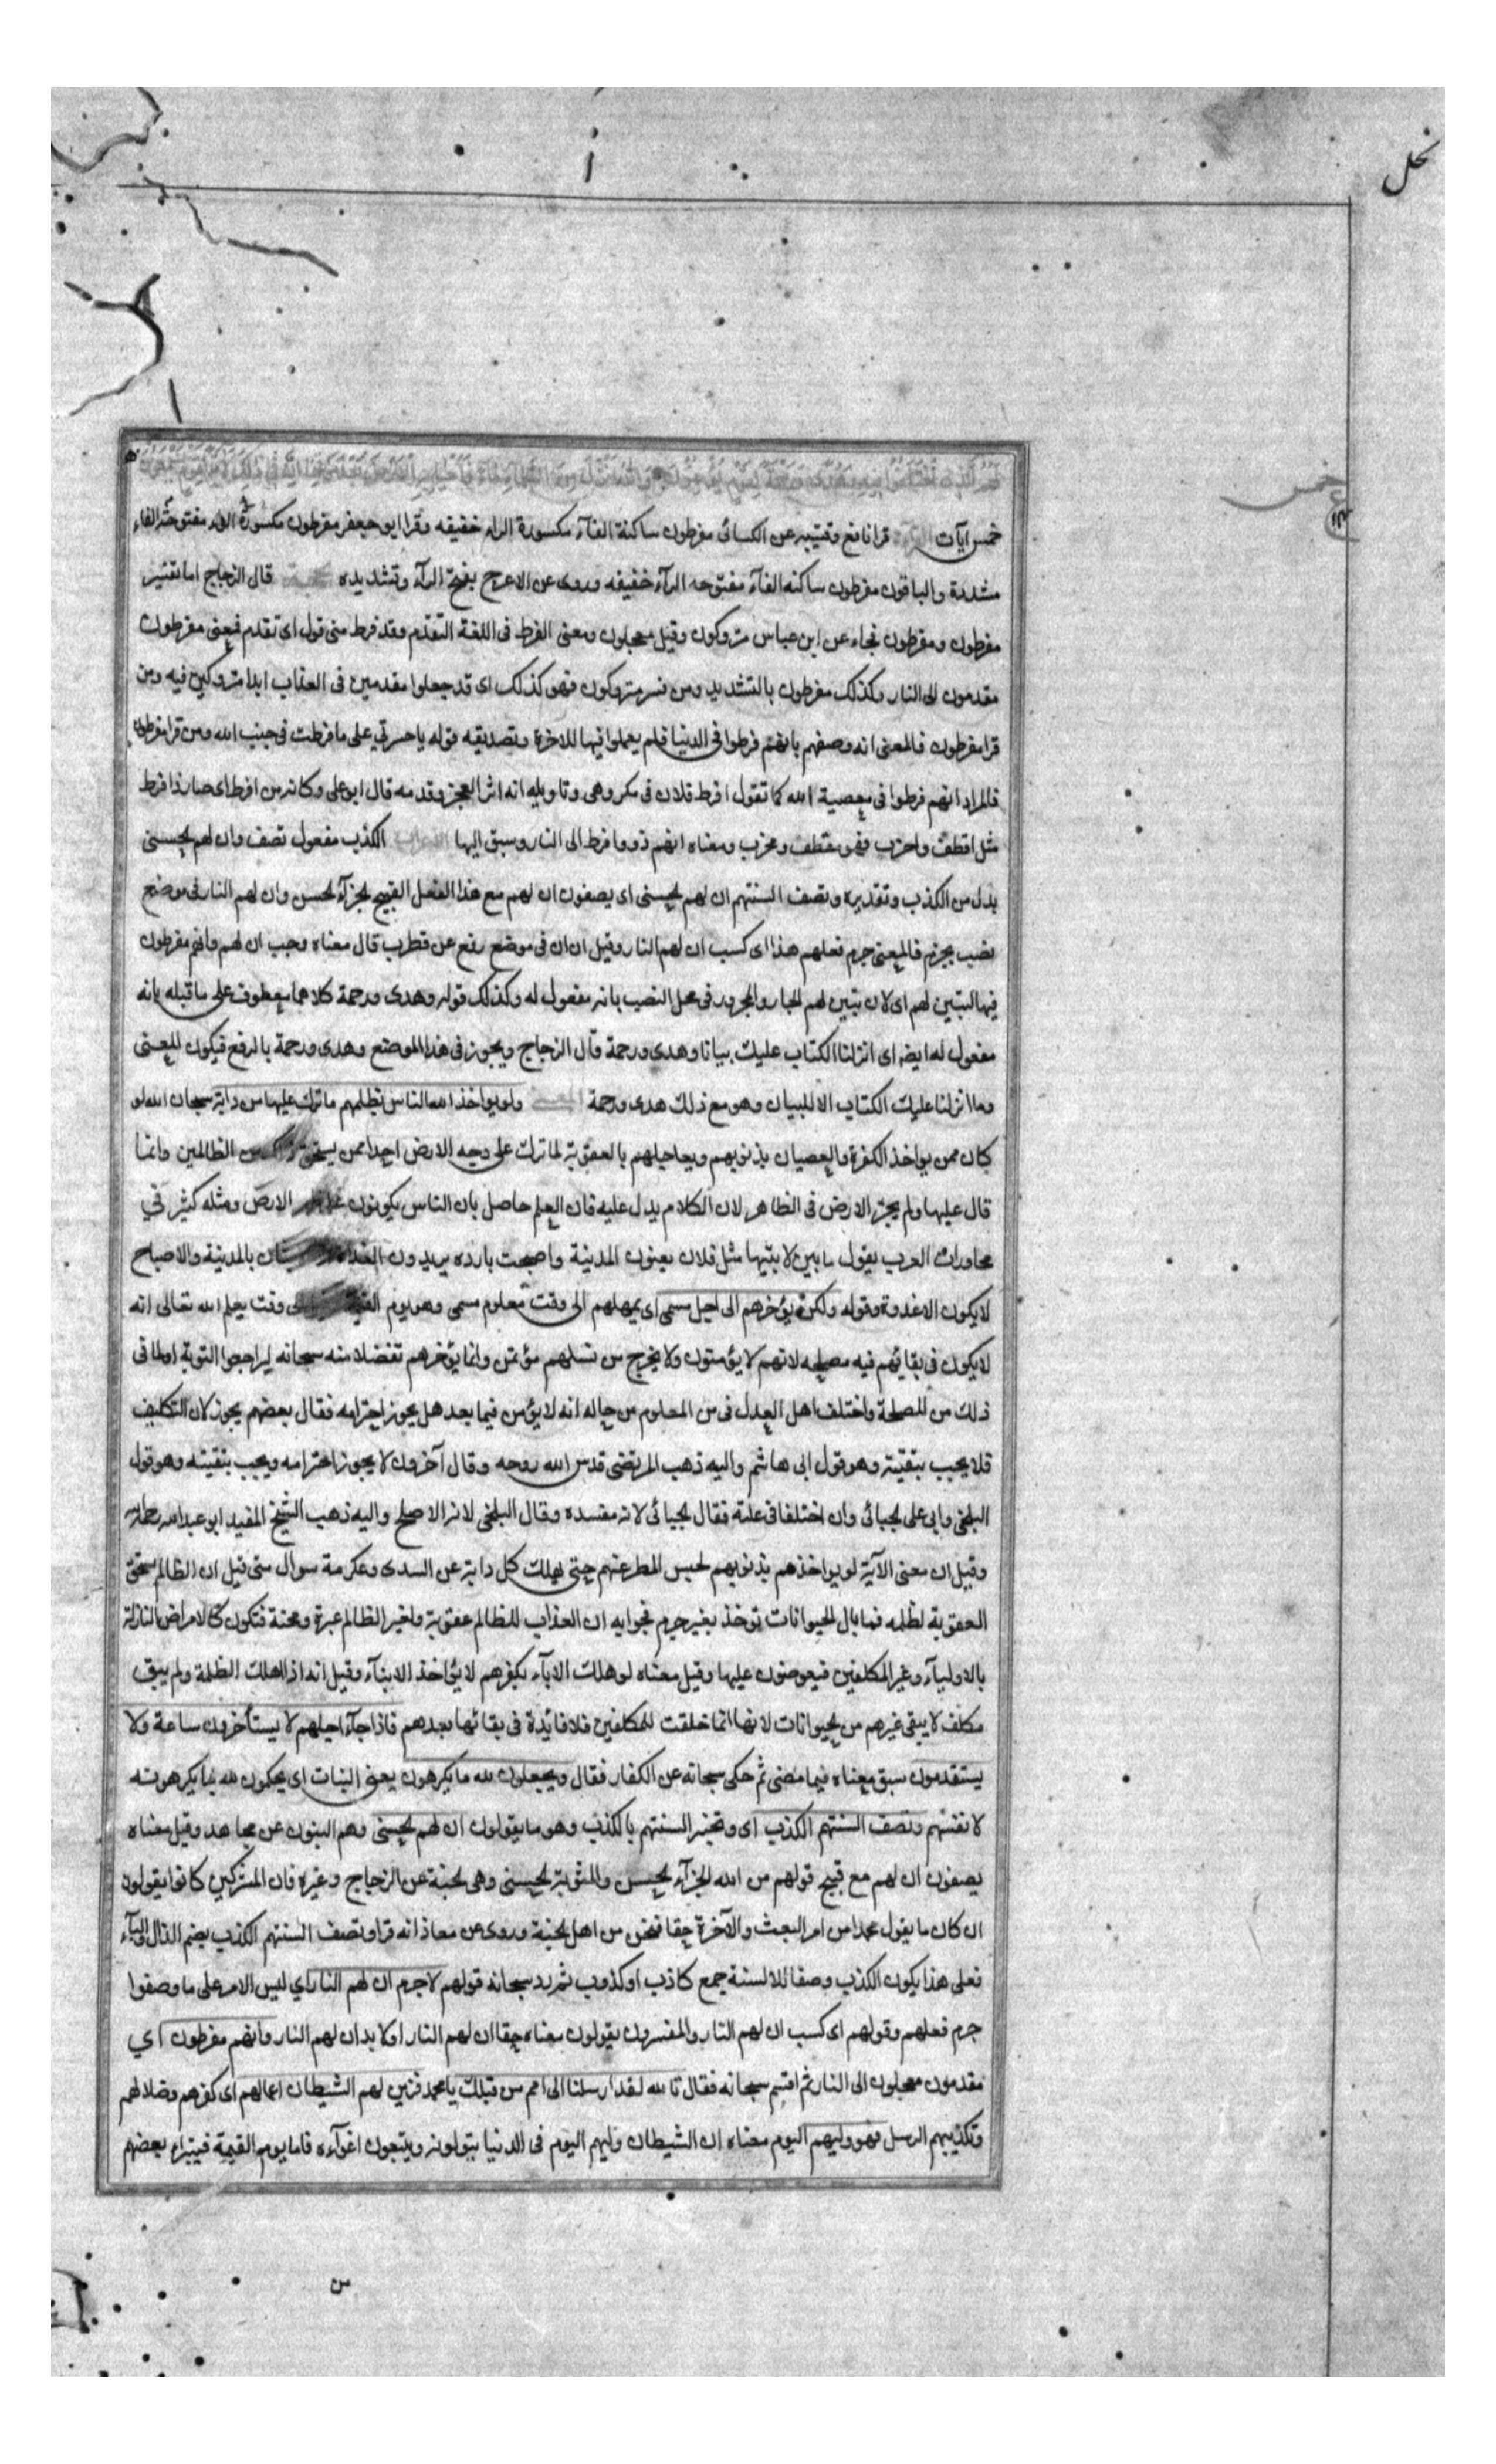 نحل
لهم الذي اختلفوا فيه وهدى ورحمة لقوم يؤمنون والله انزل من السماء ماء فاحيا به الارض بعد موتها ان في ذلك لاية لقوم يسمعون
خمس
خمس آيات قرا نافع وقتيبه عن الكسائى مفرطون ساكنة الفآء مكسورة الراء خفيفه وقرا ابو جعفر مفرطون مكسورة الراء مفتوحة الفاء
مشددة والباقون مفرطون ساكنه الفآء مفتوحه الرآء خفيفه وروى عن الاعرج بفتح الرآء وتشديده قال الزجاج اما تفسير
مفرطون ومفرطون فجاء عن ابن عباس متروكون وقيل معجلون ومعنى الفرط فى اللغة التقدم وقد فرط منى قول اى تقدم فمعنى مفرطون
مقدمون الى النار وكذلك مفرطون بالتشديد ومن فسر متروكون فهو كذلك اى قد جعلوا مقدمين فى العذاب ابدا متروكين فيه ومن
قرا مفرطون فالمعنى انه وصفهم بانهم فرطوا فى الدنيا فلم يعملوا فيها للاخرة وتصديقه قوله ياحسرتي على ما فرطت فى جنب الله ومن قرا مفرطون
فالمراد انهم فرطوا فى معصية الله كما تقول افرط فلان فى مكروهى وتاويله انه اثر العجز وقدمه قال ابو على وكانه من افرط اى صار ذا فرط
مثل اقطف واجرب فهو مقطف ومجرب ومعناه انهم ذووا فرط الى النار وسبق اليها الكذب مفعول تصف وان لهم الحسنى
بدل من الكذب وتقديره وتصف السنتهم ان لهم الحسنى اى يصفون ان لهم مع هذا الفعل القبيح الجزآء الحسن وان لهم النار فى موضع
نصب بجرم فالمعنى جرم فعلهم هذا اى كسب ان لهم النار وقيل ان ان فى موضع رفع عن قطرب قال معناه وجب ان لهم وانهم مفرطون
فيها لتبين لهم اى لان تبين لهم الجار والمجرور فى محل النصب بانه مفعول له وكذلك قوله وهدى ورحمة كلاهما معطوف على ما قبله بانه
مفعول له ايضا اى انزلنا الكتاب عليك بيانا وهدى ورحمة قال الزجاج ويجوز فى هذا الموضع وهدى ورحمة بالرفع فيكون المعنى
وما انزلنا عليك الكتاب الا للبيان وهو مع ذلك هدى ورحمة ولو يواخذ الله الناس بظلمهم ما ترك عليها من دابة سبحان الله لو
كان ممن يواخذ الكفرة والعصيان بذنوبهم ويعاجلهم بالعقوبة لما ترك على وجه الارض احدا ممن يستحق الظالمين وانما
قال عليها ولم يجر الارض فى الظاهر لان الكلام يدل عليه فان العلم حاصل بان الناس يكونون على ظهر الارض ومثله كثير في
محاورات العرب يقول ما بين لابتيها مثل فلان يعنون المدينة واصبحت بارده يريدون الغداة بالمدينة والاصباح
لا يكون الا غدوة وقوله ولكن يؤخرهم الى اجل مسمى اى يمهلهم الى وقت معلوم مسمى وهو يوم القيمة وقت يعلم الله تعالى انه
لا يكون فى بقائهم فيه مصلحه لانهم لا يؤمنون ولا يخرج من نسلهم مؤمن وانما يؤخرهم تفضلا منه سبحانه ليراجعوا التوبة او لما فى
ذلك من المصلحة واختلف اهل العدل فى من المعلوم من حاله انه لا يؤمن فيما بعد هل يجوز اخترامه فقال بعضهم يجوز لان التكليف
فلا يجب بتقيته وهو قول ابى هاشم واليه ذهب المرتضى قدس الله روحه وقال آخرون لا يجوز اخترامه ويجب بتقيته وهو قول
البلخى وابى على الجبائى وان اختلفا فى علته فقال الجبائى لانه مفسده وقال البلخى لانه الاصلح واليه ذهب الشيخ المفيد ابو عبد الله رحمه الله
وقيل ان معنى الآية لو يواخذهم بذنوبهم لحبس المطر عنهم حتى يهلك كل دابة عن السدى وعكرمة سوال متى قيل ان الظالم يستحق
العقوبة لظلمه فما بال الحيوانات توخذ بغير جرم فجوابه ان العذاب للظالم عقوبة ولغير الظالم عبرة ومحنة فتكون كالامراض النازلة
بالاوليآء وغير المكلفين فيعوضون عليها وقيل معناه لو هلك الابآء بكفرهم لا يؤاخذ الابنآء وقيل انه اذا هلك الظلمة ولم يبق
مكلف لا يبقى غيرهم من الحيوانات لانها انما خلقت للمكلفين فلا فائدة فى بقائها بعدهم فاذا جآء اجلهم لا يستأخرون ساعة ولا
يستقدمون سبق معناه فيما مضى ثم حكى سبحانه عن الكفار فقال ويجعلون لله ما يكرهون يعنى البنات اى يحكمون لله بما يكرهونه
لانفسهم وتصف السنتهم الكذب اى وتخبر السنتهم بالكذب وهو ما يقولون ان لهم الحسنى وهم البنون عن مجاهد وقيل معناه
يصفون ان لهم مع قبيح قولهم من الله الجزآء الحسن والمثوبة الحسنى وهى الجنة عن الزجاج وغيره فان المشركين كانوا يقولون
ان كان ما يقول محمدا من امر البعث والآخرة حقا فنحن من اهل الجنة وروى عن معاذ انه قرا وتصف السنتهم الكذب بضم الذال والبآء
فعلى هذا يكون الكذب وصفا للالسنة جمع كاذب او كذوب ثم رد سبحانه قولهم لا جرم ان لهم النار اي ليس الامر على ما وصفوا
جرم فعلهم وقولهم اى كسب ان لهم النار والمفسرون يقولون معناه حقا ان لهم النار او لا بد ان لهم النار وانهم مفرطون اي
مقدمون معجلون الى النار ثم اقسم سبحانه فقال تالله لقد ارسلنا الى امم من قبلك يا محمد فزين لهم الشيطان اعمالهم اى كفرهم وضلالهم
وتكذيبهم الرسل فهو وليهم اليوم معناه ان الشيطان وليهم اليوم فى الدنيا يتولونه ويتبعون اغوآءه فاما يوم القيمة فيتبراء بعضهم